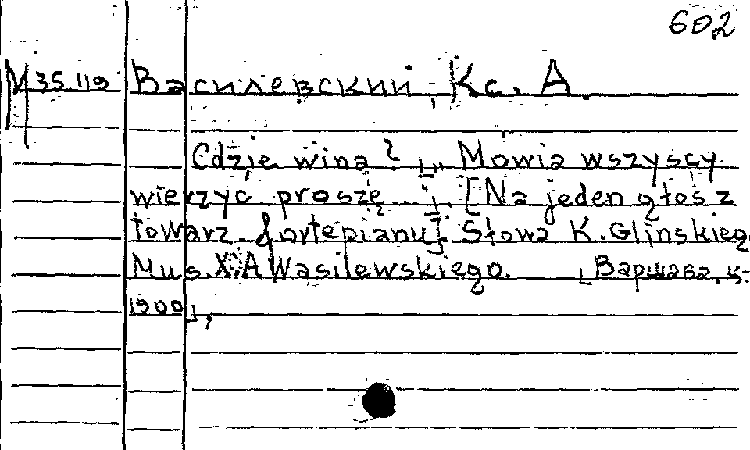 602
М 35.119 Василевский, Кс. А.
Gdzie wina? „Mówia wszyscy
wierzyc proszę ...“; [Na jeden głos z
towarz. fortepianu]. Słowa K. Glinskiego
Mus. X. A Wasilewskiego. [Варшава, ц.
1900],